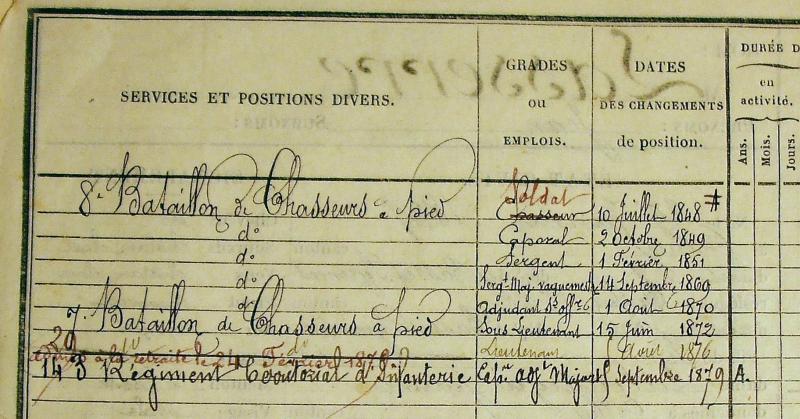 SERVICES ET POSITIONS DIVERS.
GRADES
ou
EMPLOIS.
DATES
DES CHANGEMENTS
de position.
DURÉE D
en
activité.
Ans.
Mois.
Jours.
Soldat
8e Bataillon de Chasseurs à pied Chasseur 10 Juillet 1848 #
do Caporal 2 Octobre 1849
do Sergent 1 Février 1851
do Sergt Maj. vaguemestre 14 Septembre 1869
do Adjudant Ss offr 1 Août 1870
7e Bataillon de Chasseurs à pied Sous Lieutenant 15 Juin 1872
do Lieutenant Août 1876
à la retraite le 24 Février 1879
143 Régiment Territorial d'Infanterie Capne adjt Major Septembre 1879 A.